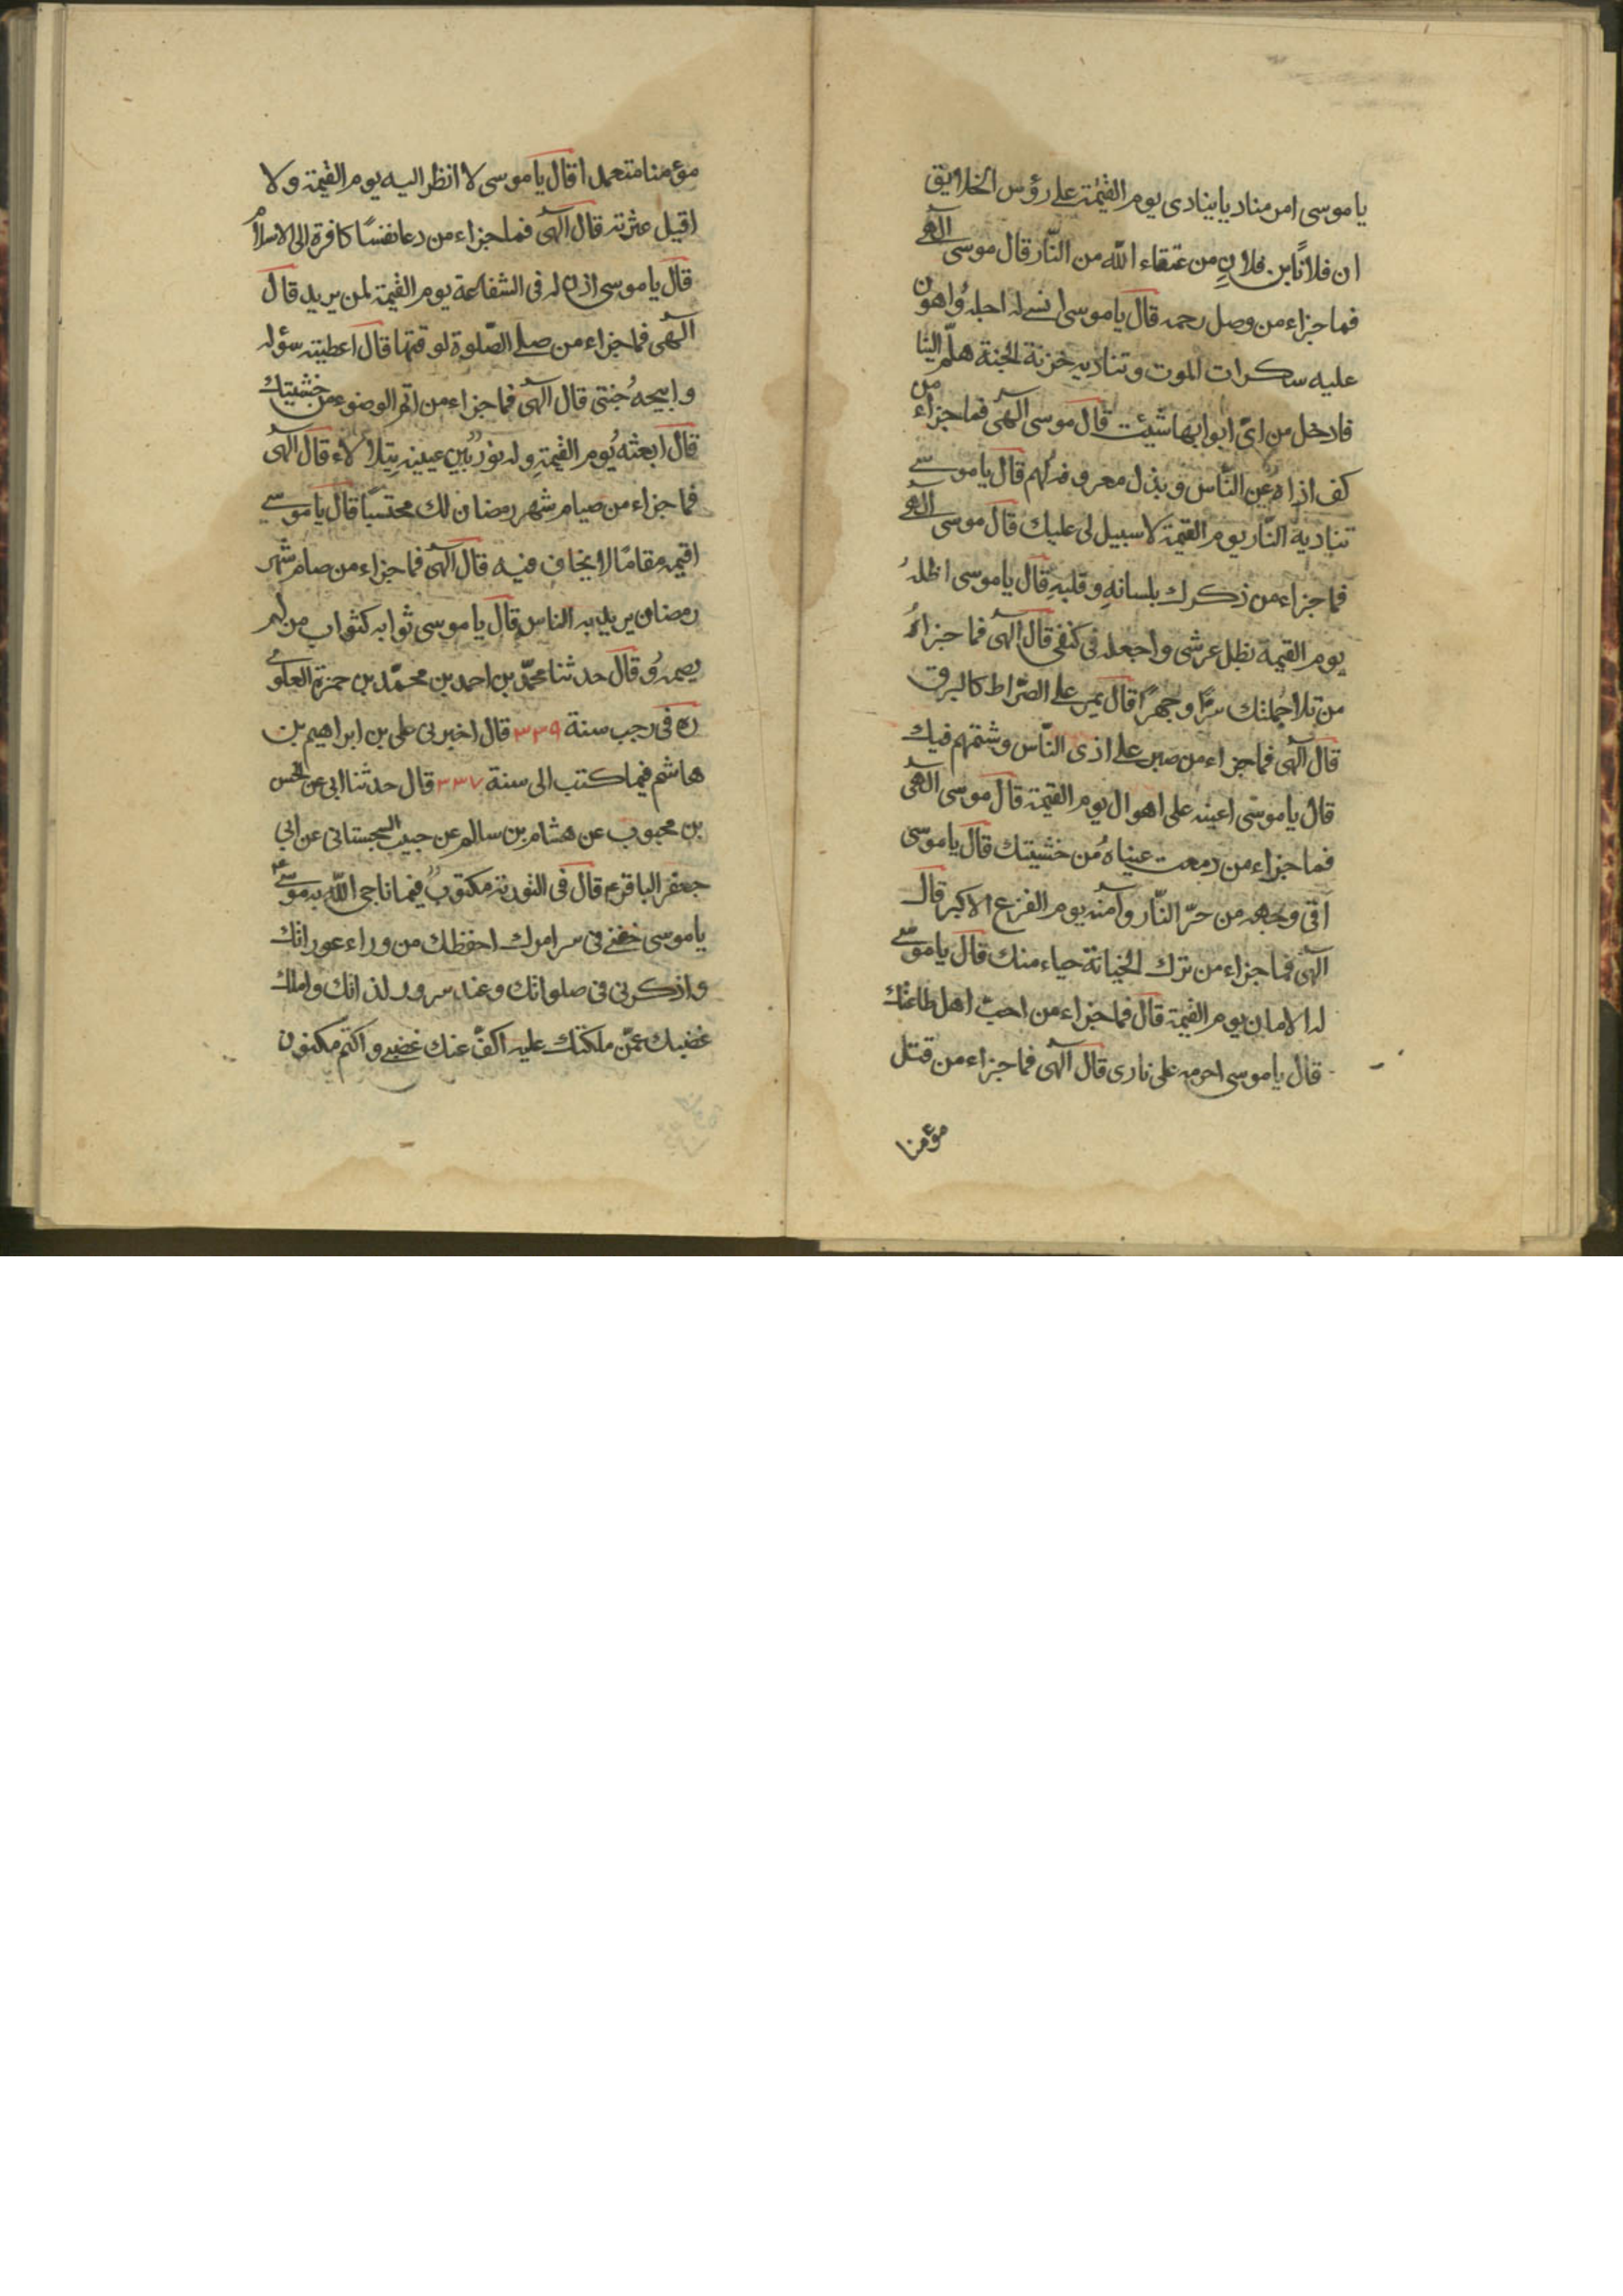 يا موسى امن مناديا ينادى يوم القيمة على رؤس الخلايق
ان فلانا بن فلان من عتقاء الله من النار قال موسى الهى
فما جزاء من وصل رحمه قال يا موسى انسى له اجله واهون
عليه سكرات الموت وتناديه خزنة الجنة هلم الينا
فادخل من اى ابوابها شيئت قال موسى الهى فما جزاء من
كف اذاه عن الناس وبذل معروفه لهم قال يا موسى
تناديه النار يوم القيمة لا سبيل لى عليك قال موسى الهى
فما جزاء من ذكرك بلسانه وقلبه قال يا موسى اظله
يوم القيمة بظل عرشى واجعله فى كنفى قال الهى فما جزاء
من تلا حكمتك سرا وجهرا قال يمر على الصراط كالبرق
قال الهى فما جزاء من صبر على اذى الناس وشتمهم فيك
قال يا موسى اعينه على اهوال يوم القيمة قال موسى الهى
فما جزاء من دمعت عيناه من خشيتك قال يا موسى
اقى وجهه من حر النار وآمنه يوم الفزع الاكبر قال
الهى فما جزاء من ترك الخيانة حياء منك قال يا موسى
له الامان يوم القيمة قال فما جزاء من احب اهل طاعتك
قال يا موسى احرمه على نارى قال الهى فما جزاء من قتل
مؤمنا
مؤمنا متعمدا قال يا موسى لا انظر اليه يوم القيمة ولا
اقيل عثرته قال الهى فما جزاء من دعا نفسا كافرة الى الاسلام
قال يا موسى اذن له فى الشفاعة يوم القيمة لمن يريد قال
الهى فما جزاء من صلى الصلوة لوقتها قال اعطيته سؤله
وابيحه جنتى قال الهى فما جزاء من اتم الوضوء من خشيتك
قال ابعثه يوم القيمة وله نور بين عينيه يتلالاء قال الهى
فما جزاء من صيام شهر رمضان لك محتسبا قال يا موسى
اقيمه مقاما لا يخاف فيه قال الهى فما جزاء من صام شهر
رمضان يريد به الناس قال يا موسى ثوابه كثواب من لم
يصمه وقال حدثنا محمد بن احمد بن محمد بن حمزة العلوى
ره فى رجب سنة ٣٣٩ قال اخبرنى على بن ابراهيم بن
هاشم فيما كتب الى سنة ٣٣٧ قال حدثنا ابى عن الحسن
بن محبوب عن هشام بن سالم عن حبيب السجستانى عن ابى
جعفر الباقر ع قال فى التورية مكتوب فيما ناجى الله به موسى ع
يا موسى خفنى فى سر امرك احفظك من وراء عوراتك
واذكرنى فى صلواتك وعند سرور لذاتك واملك
غضبك عمن ملكتك عليه اكف عنك غضبى واكتم مكنون